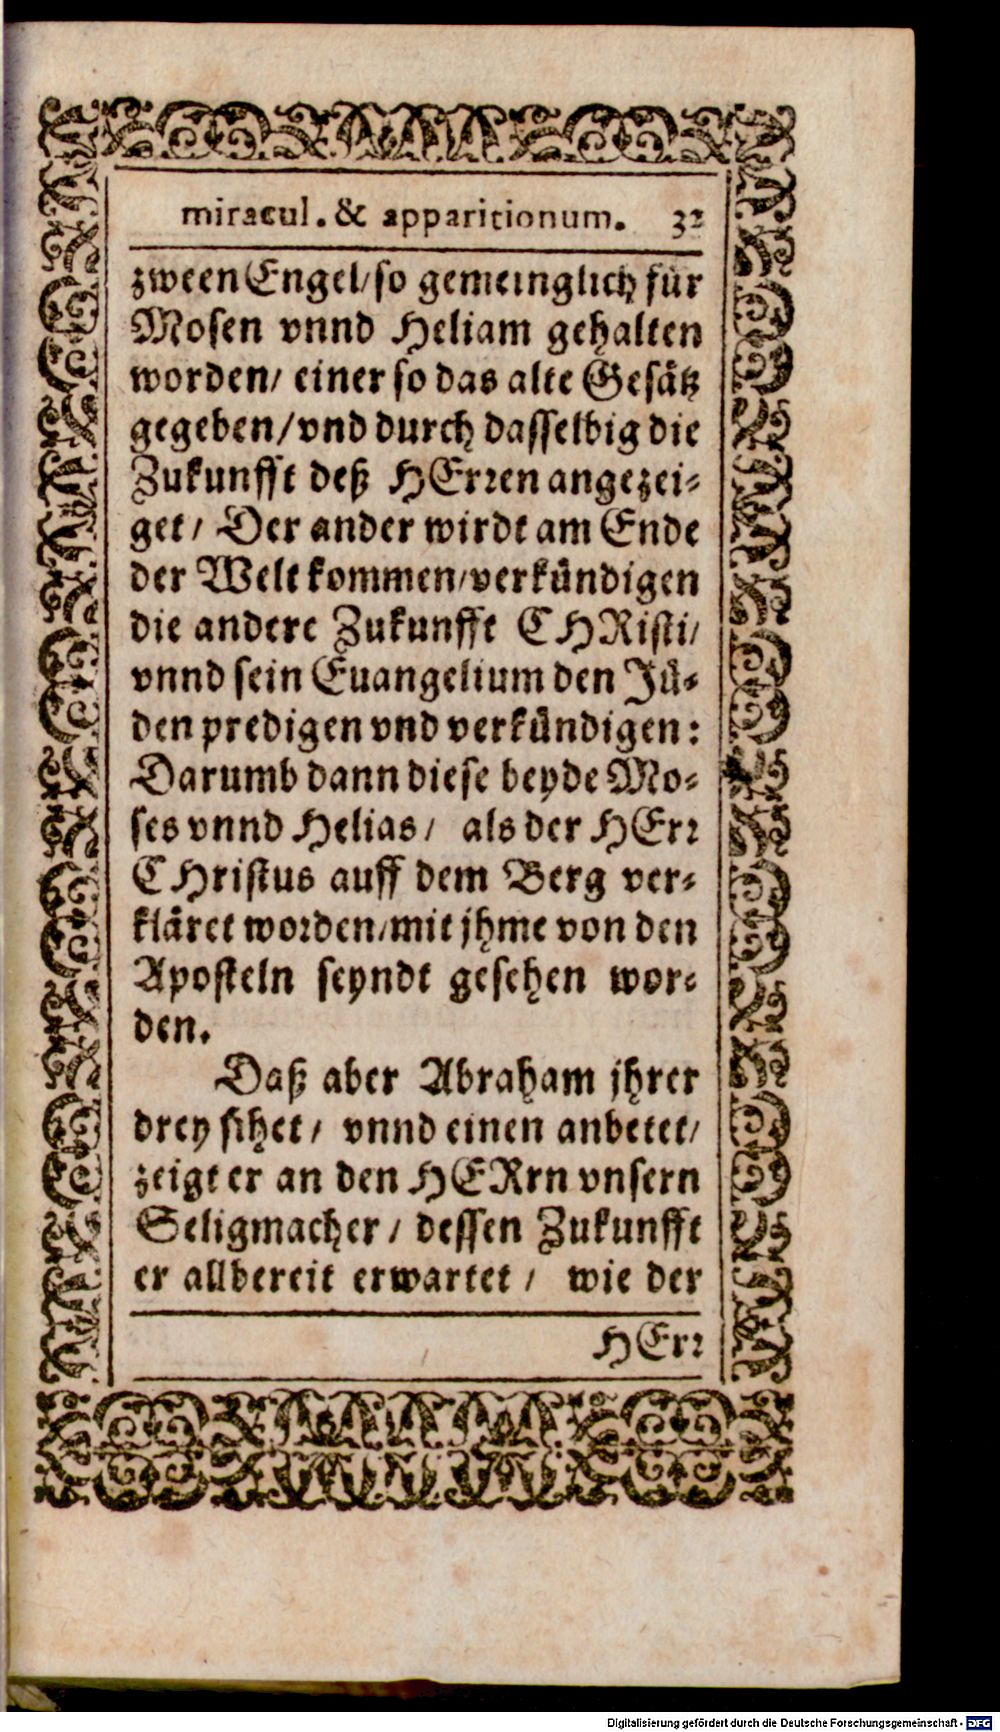 miracul. & apparitionum. 32
zween Engel/ so gemeinglich für
Mosen vnnd Heliam gehalten
worden/ einer so das alte Gesätz
gegeben/ vnd durch dasselbig die
Zukunfft deß HErren angezei-
get/ Der ander wirdt am Ende
der Welt kommen/ verkündigen
die andere Zukunfft CHRisti/
vnnd sein Euangelium den Jü-
den predigen vnd verkündigen:
Darumb dann diese beyde Mo-
ses vnnd Helias/ als der HErr
CHristus auff dem Berg ver-
kläret worden/ mit jhme von den
Aposteln seyndt gesehen wor-
den.
Daß aber Abraham jhrer
drey sihet/ vnnd einen anbetet/
zeigt er an den HERrn vnsern
Seligmacher/ dessen Zukunfft
er allbereit erwartet/ wie der
HErr
Digitalisierung gefördert durch die Deutsche Forschungsgemeinschaft - DFG